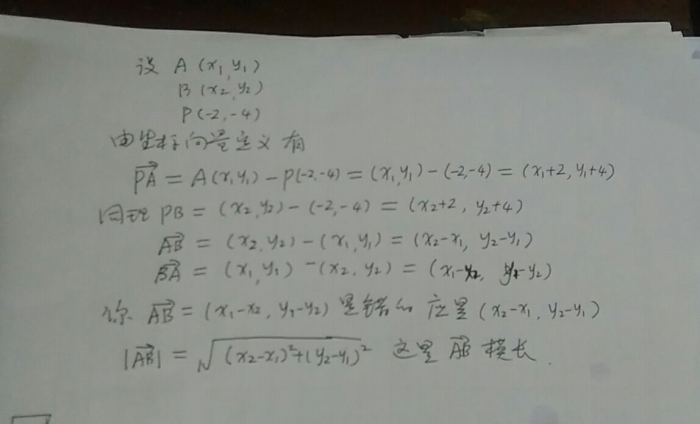 设 A(x₁,y₁)
B(x₂,y₂)
P(-2,-4)
由坐标向量定义有
PA = A(x₁,y₁) - P(-2,-4) = (x₁,y₁) - (-2,-4) = (x₁+2, y₁+4)
同理 PB = (x₂,y₂) - (-2,-4) = (x₂+2, y₂+4)
AB = (x₂,y₂) - (x₁,y₁) = (x₂-x₁, y₂-y₁)
BA = (x₁,y₁) - (x₂,y₂) = (x₁-x₂, y₁-y₂)
你 AB = (x₁-x₂, y₁-y₂) 是错的 应是 (x₂-x₁, y₂-y₁)
|AB| = √(x₂-x₁)²+(y₂-y₁)² 这是 AB 模长.